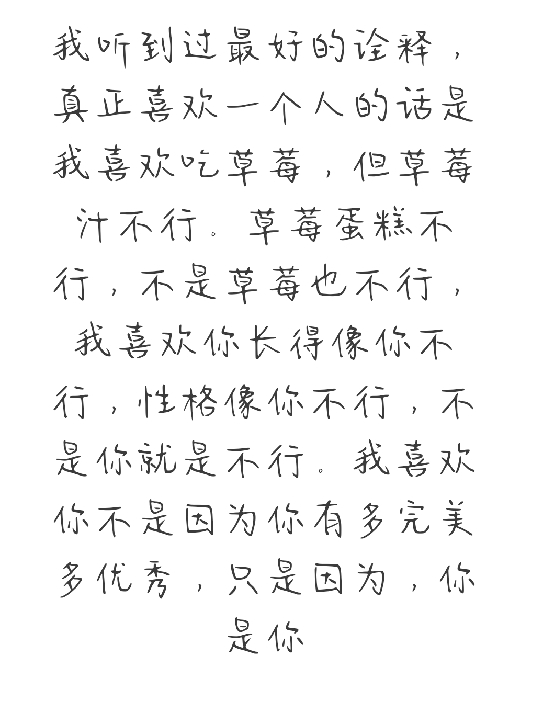 我听到过最好的诠释，
真正喜欢一个人的话是
我喜欢吃草莓，但草莓
汁不行。草莓蛋糕不
行，不是草莓也不行，
我喜欢你长得像你不
行，性格像你不行，不
是你就是不行。我喜欢
你不是因为你有多完美
多优秀，只是因为，你
是你